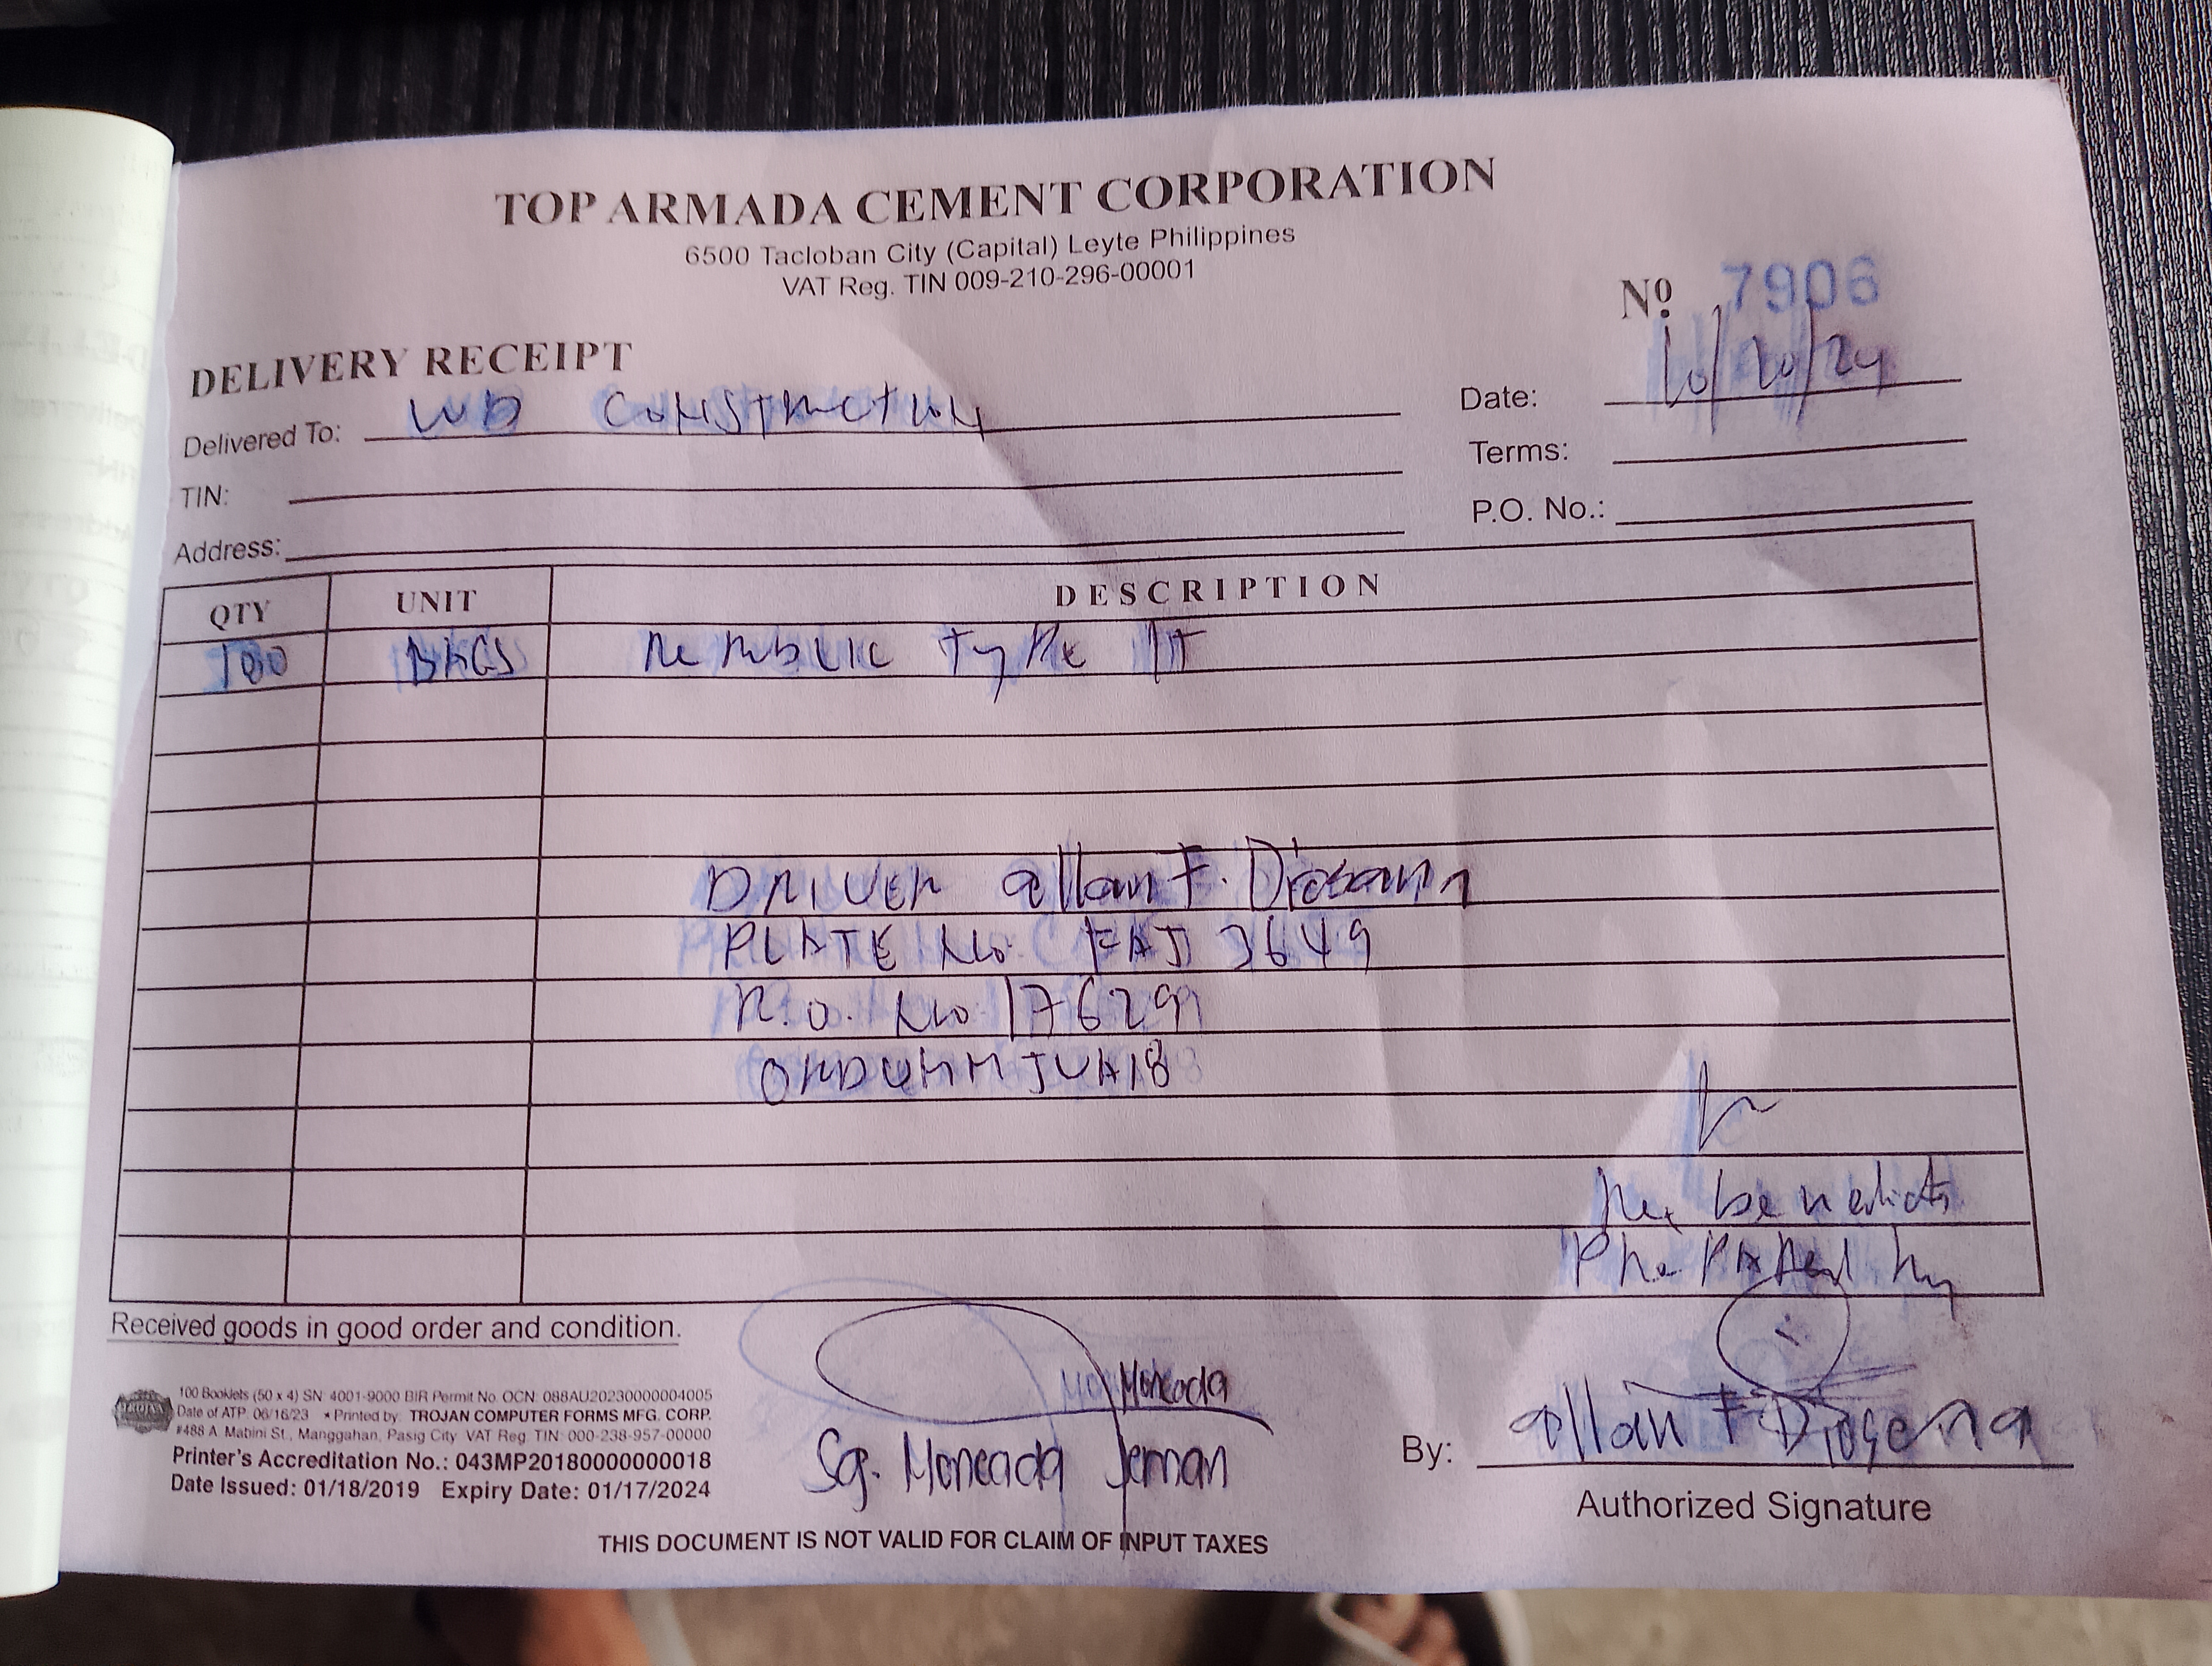 TOP ARMADA CEMENT CORPORATION
6500 Tacloban City (Capital) Leyte Philippines
VAT Reg. TIN 009-210-296-00001
Nº 7906
DELIVERY RECEIPT
Delivered To: WD CONSTRUCTION
Date: 10/20/24
TIN:
Terms:
Address:
P.O. No.:
QTY UNIT DESCRIPTION
100 BAGS Republic Type 1T
DRIVER allan F. Diosana
PLATE No. FAJ 3649
R.O. No. 176299
JUA18
Rex benedicto
Prepared by
Received goods in good order and condition.
100 Booklets (50 x 4) SN: 4001-9000 BIR Permit No. OCN: 088AU20230000004005
Date of ATP: 06/16/23 * Printed by: TROJAN COMPUTER FORMS MFG. CORP.
#488 A. Mabini St., Manggahan, Pasig City VAT Reg. TIN: 000-238-957-00000
Printer's Accreditation No.: 043MP20180000000018
Date Issued: 01/18/2019 Expiry Date: 01/17/2024
Moncada
Sg. Moncada Jeman
By: allan F Diosana
Authorized Signature
THIS DOCUMENT IS NOT VALID FOR CLAIM OF INPUT TAXES